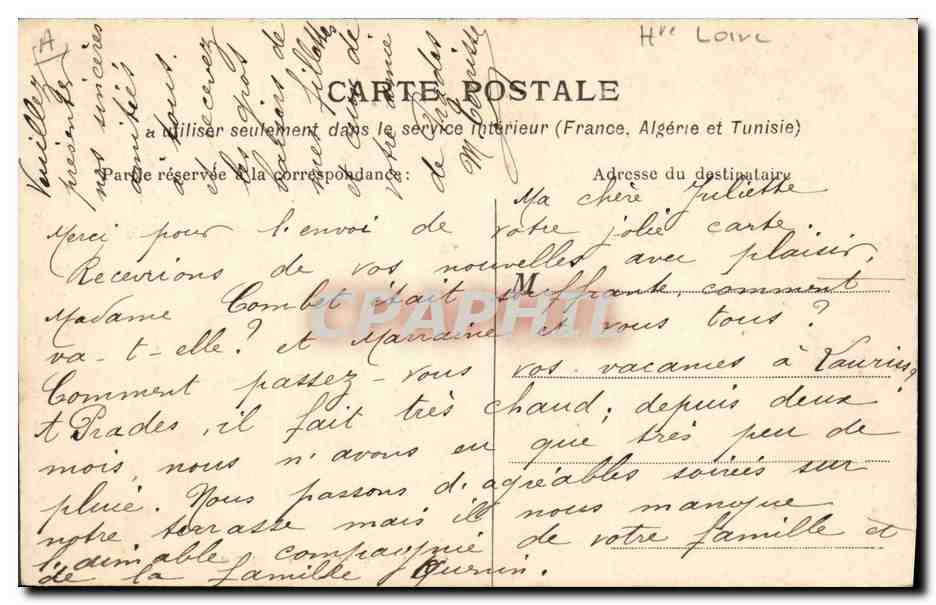 A
Hte Loire
CARTE POSTALE
à utiliser seulement dans le service intérieur (France, Algérie et Tunisie)
Partie réservée à la correspondance:
Adresse du destinataire
M
Ma chère Juliette
Merci pour l'envoi de votre jolie carte.
Recevrions de vos nouvelles avec plaisir,
Madame Combet était souffrante, comment
va-t-elle? et Marraine et vous tous?
Comment passez-vous vos vacances à
A Prades, il fait très chaud; depuis deux
mois, nous n'avons eu que très peu de
pluie. Nous passons d'agréables soirées sur
notre terrasse mais il nous manque
l'aimable compagnie de votre famille et
de la famille
Veuillez
présenter
nos sincères
amitiés
à tous.
et recevez
les gros
baisers de
mes fillettes
et ceux de
votre amie
de Prades
M
CPAPHIL